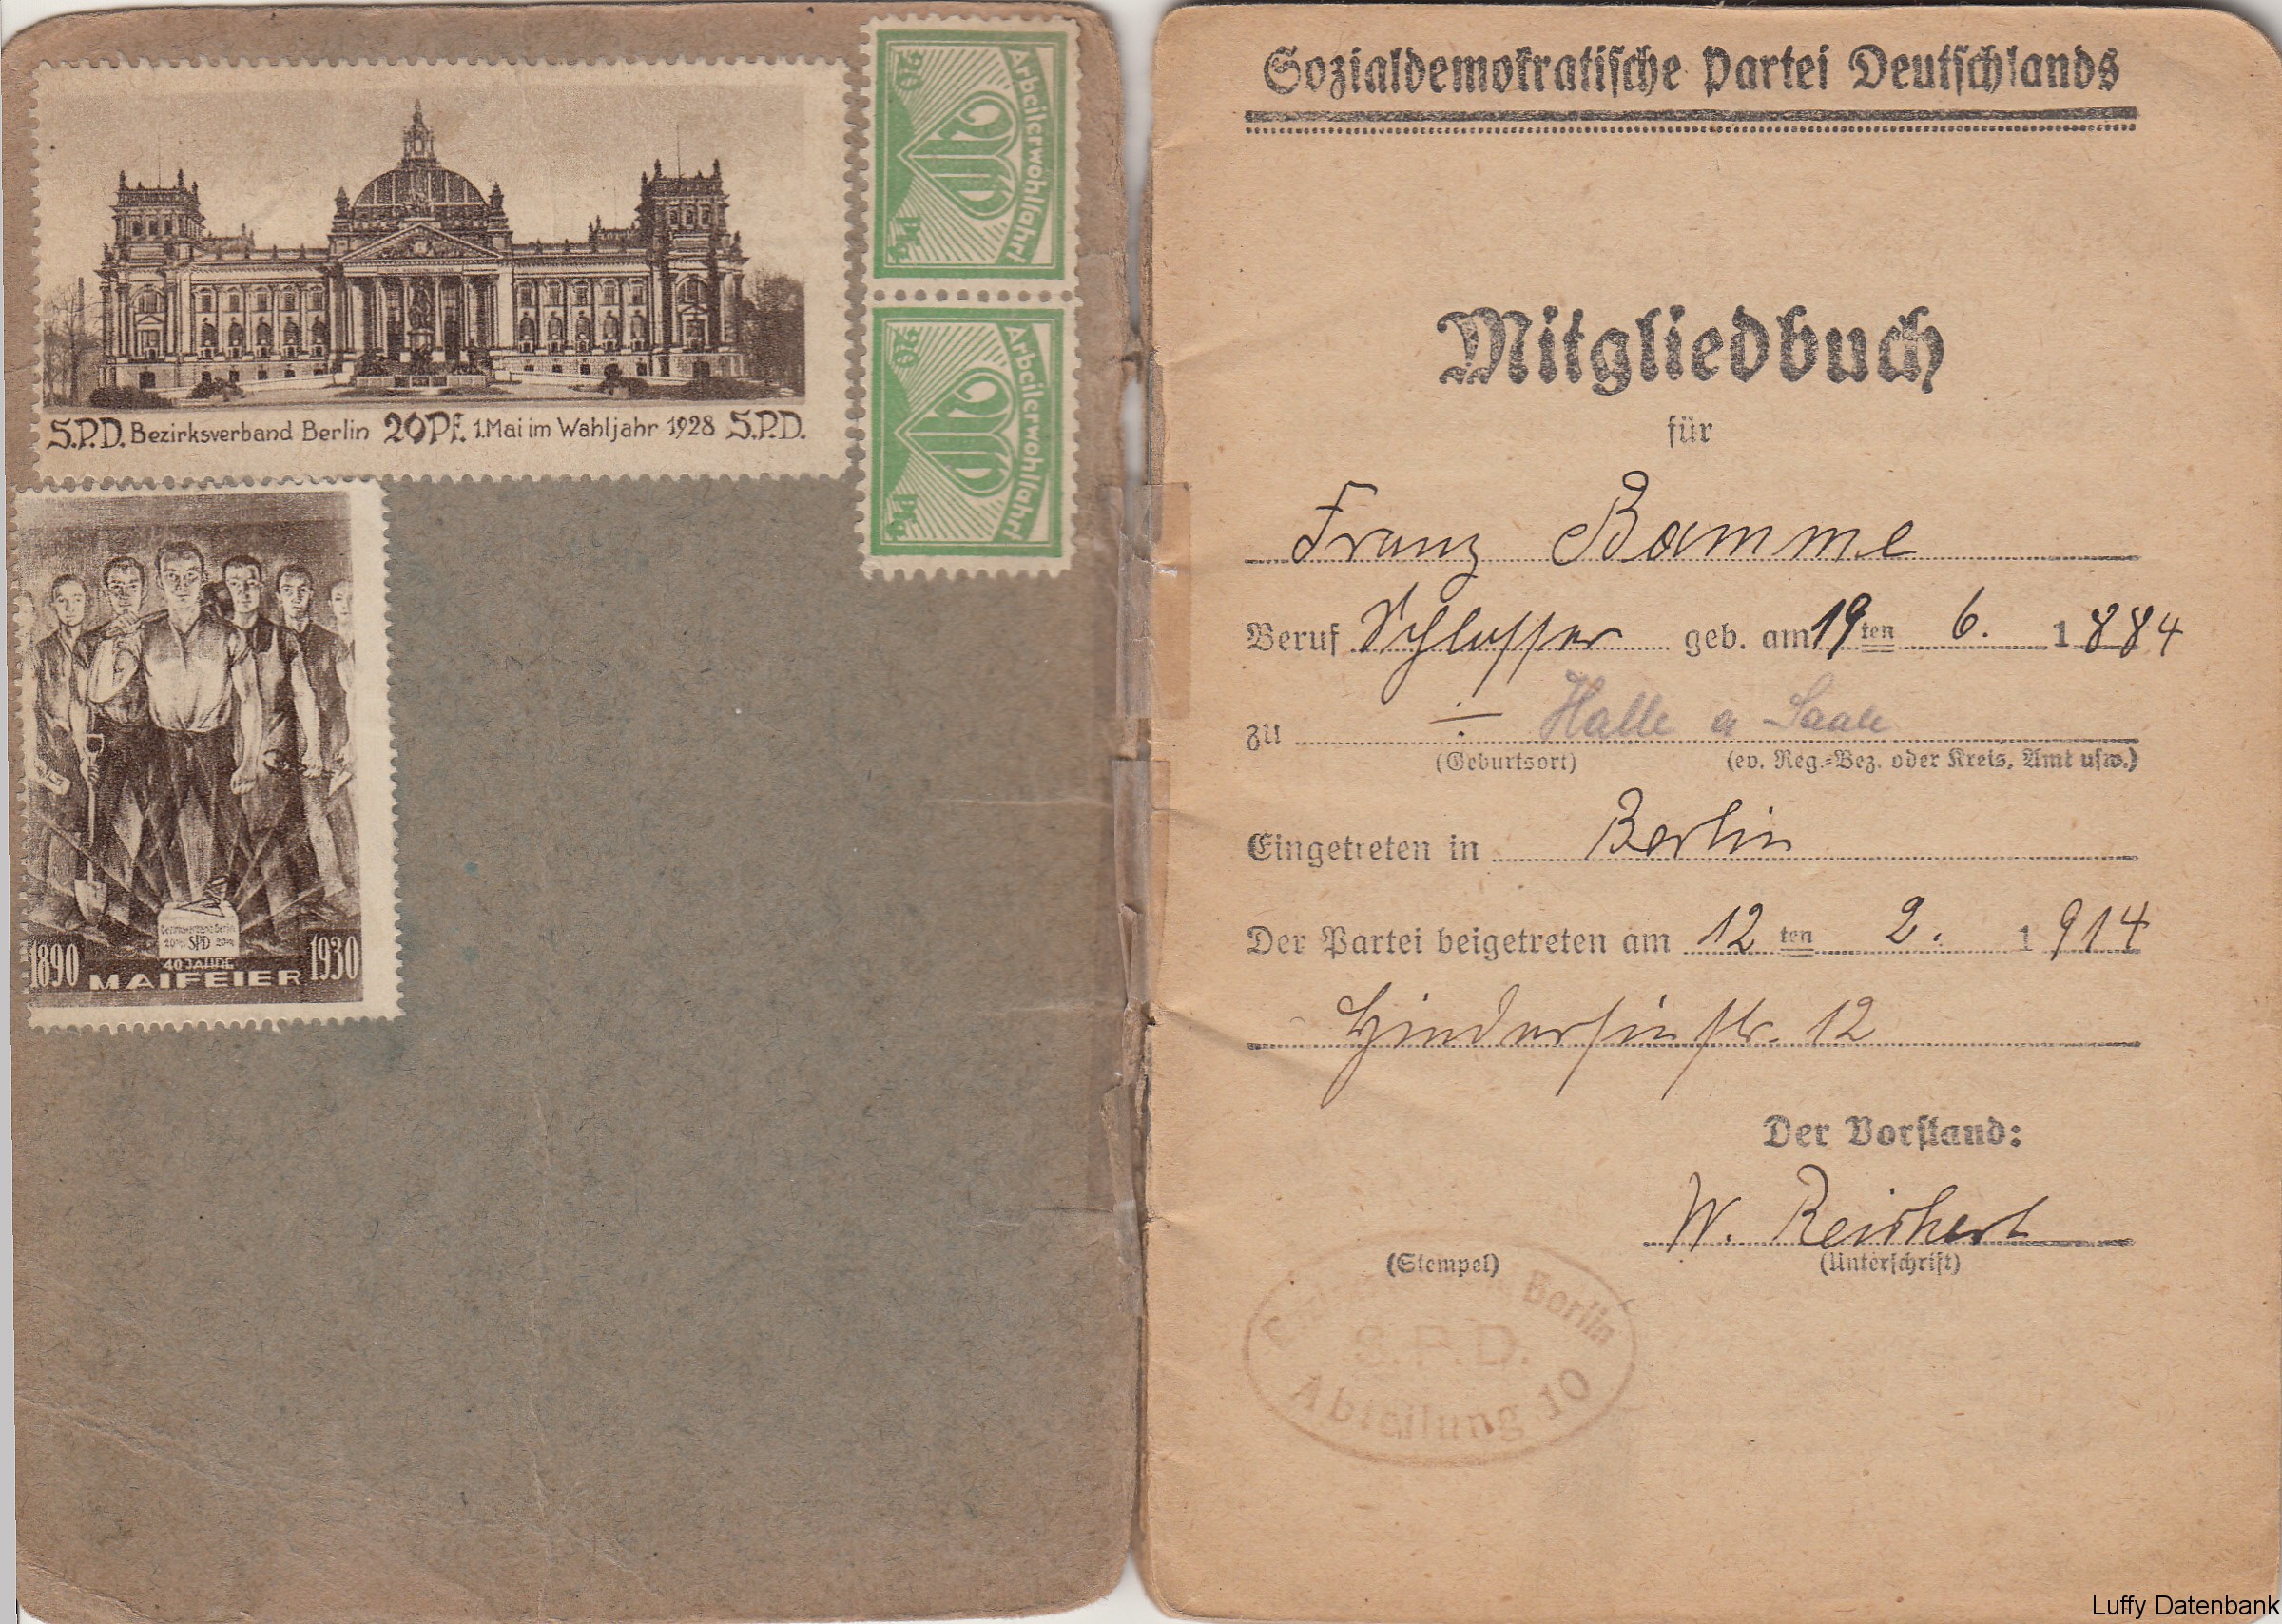 S.P.D. Bezirksverband Berlin 20 Pf. 1. Mai im Wahljahr 1928 S.P.D.
Arbeiterwohlfahrt
20 Pfg
Arbeiterwohlfahrt
20 Pfg
Bezirksverband Berlin
20 Pf. SPD 20 Pf.
40 JAHRE
1890 MAIFEIER 1930
Sozialdemokratische Partei Deutschlands
Mitgliedbuch
für
Franz Bamme
Beruf Schlosser geb. am 19ten 6. 1884
zu Halle a Saale
(Geburtsort) (ev. Reg.-Bez. oder Kreis, Amt usw.)
Eingetreten in Berlin
Der Partei beigetreten am 12ten 2. 1914
Hindersinstr. 12
Der Vorstand:
W. Reichert
(Stempel) (Unterschrift)
Berlin
S.P.D.
Abteilung 10
Luffy Datenbank